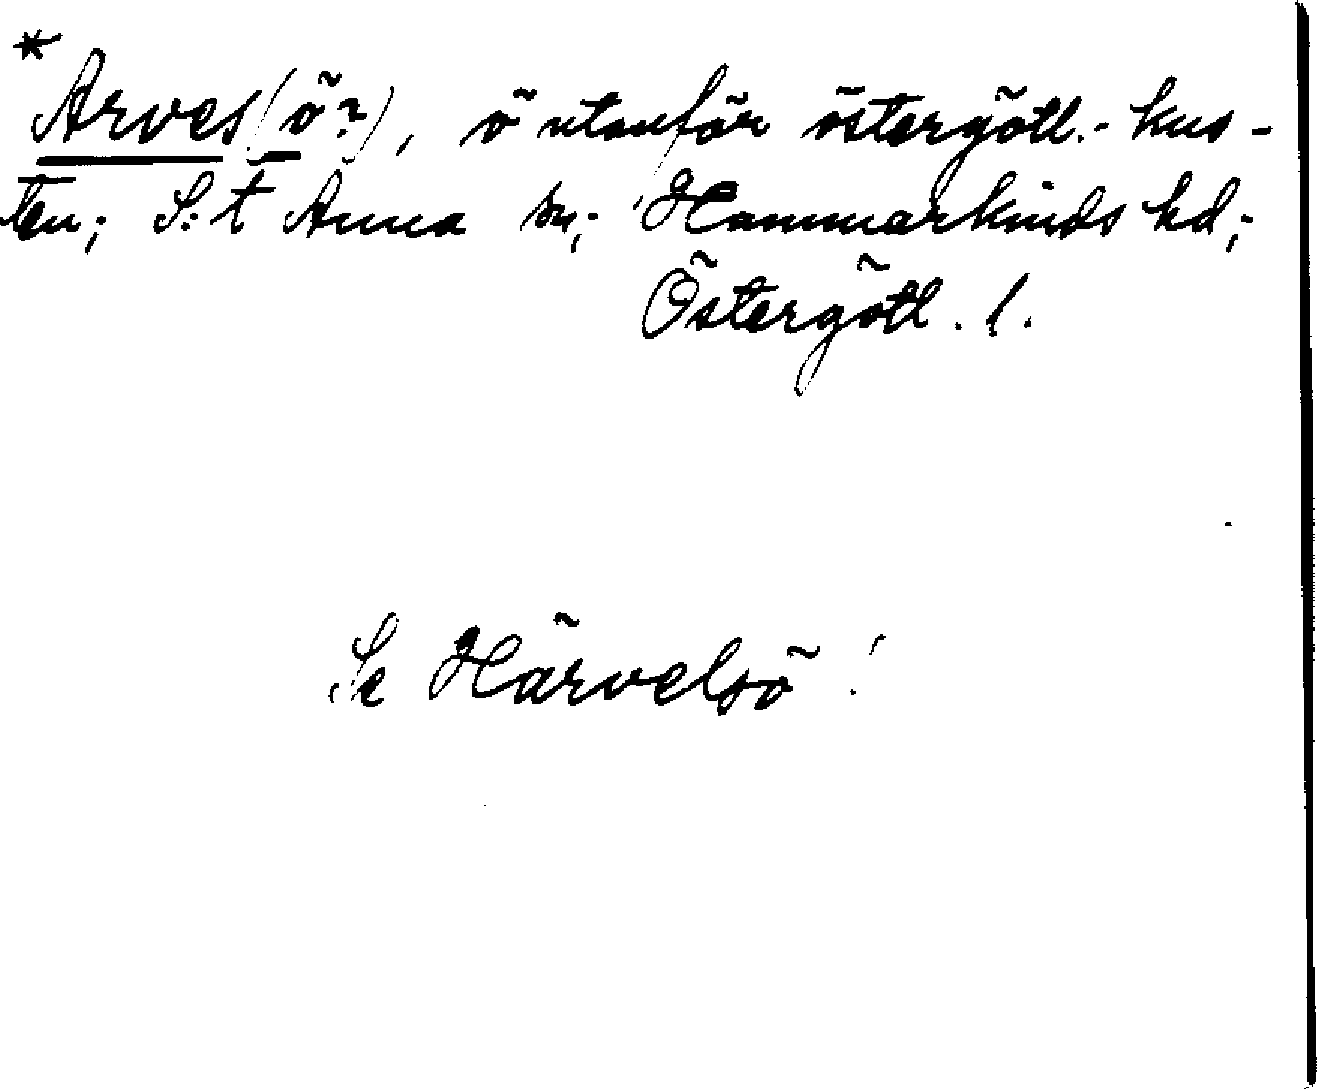 *Arves(ö?), ö utanför östergötl.- kus-
ten; S:t Anna sn; Hammarkinds hd;
Östergötl. l.
Se Härvelsö!